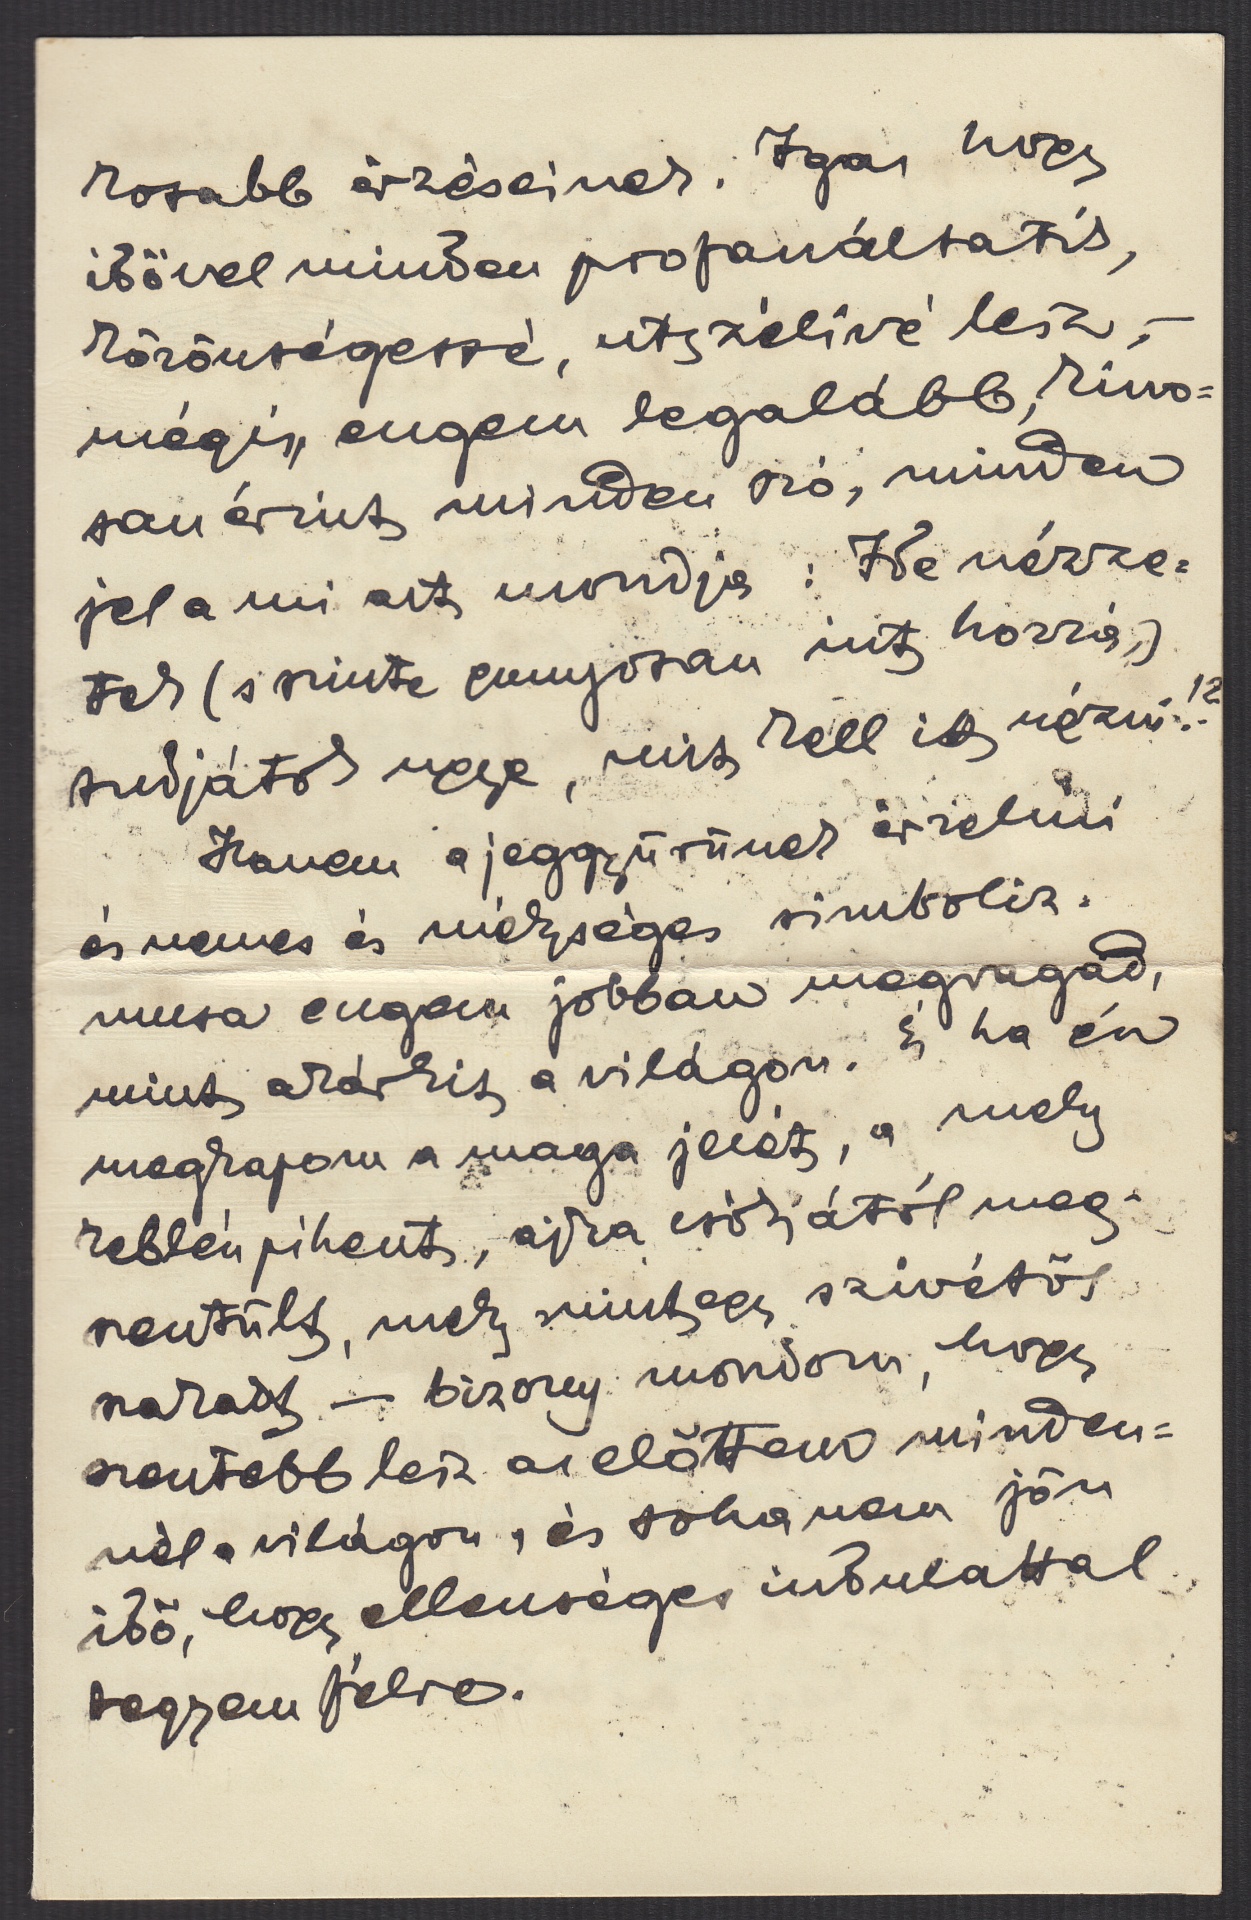 kosabb érzéseinek. Igaz hogy
idővel minden profanáltatik,
közönségessé, utszélivé lesz, –
mégis, engem legalább, kino=
san érint minden szó, minden
jel a mi azt mondja: Ide nézze=
tek (s szinte gunyosan int hozzá,)
tudjátok ugye, mit kell itt nézni!?
Hanem a jeggyürünek érzelmi
és nemes és mélységes simboliz-
musa engem jobban megragad,
mint akárkit a világon. És ha én
megkapom a maga jelét, a mely
keblén pihent, ajka csókjától meg-
szentült, mely mint egy szivéből
szakadt – bizony mondom, hogy
szentebb lesz az előttem minden=
nél a világon, és soha nem jön
idő, hogy ellenséges indulattal
tegyem félre.